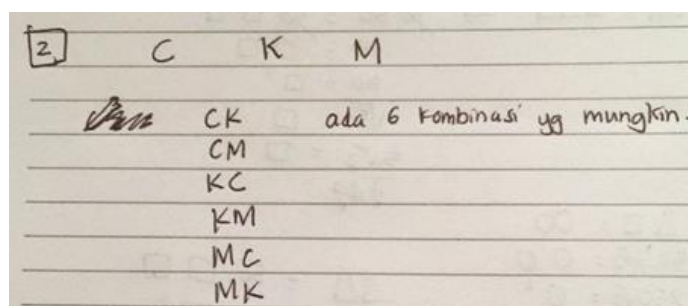 2. C K M
CK ada 6 kombinasi yg mungkin.
CM
KC
KM
MC
MK